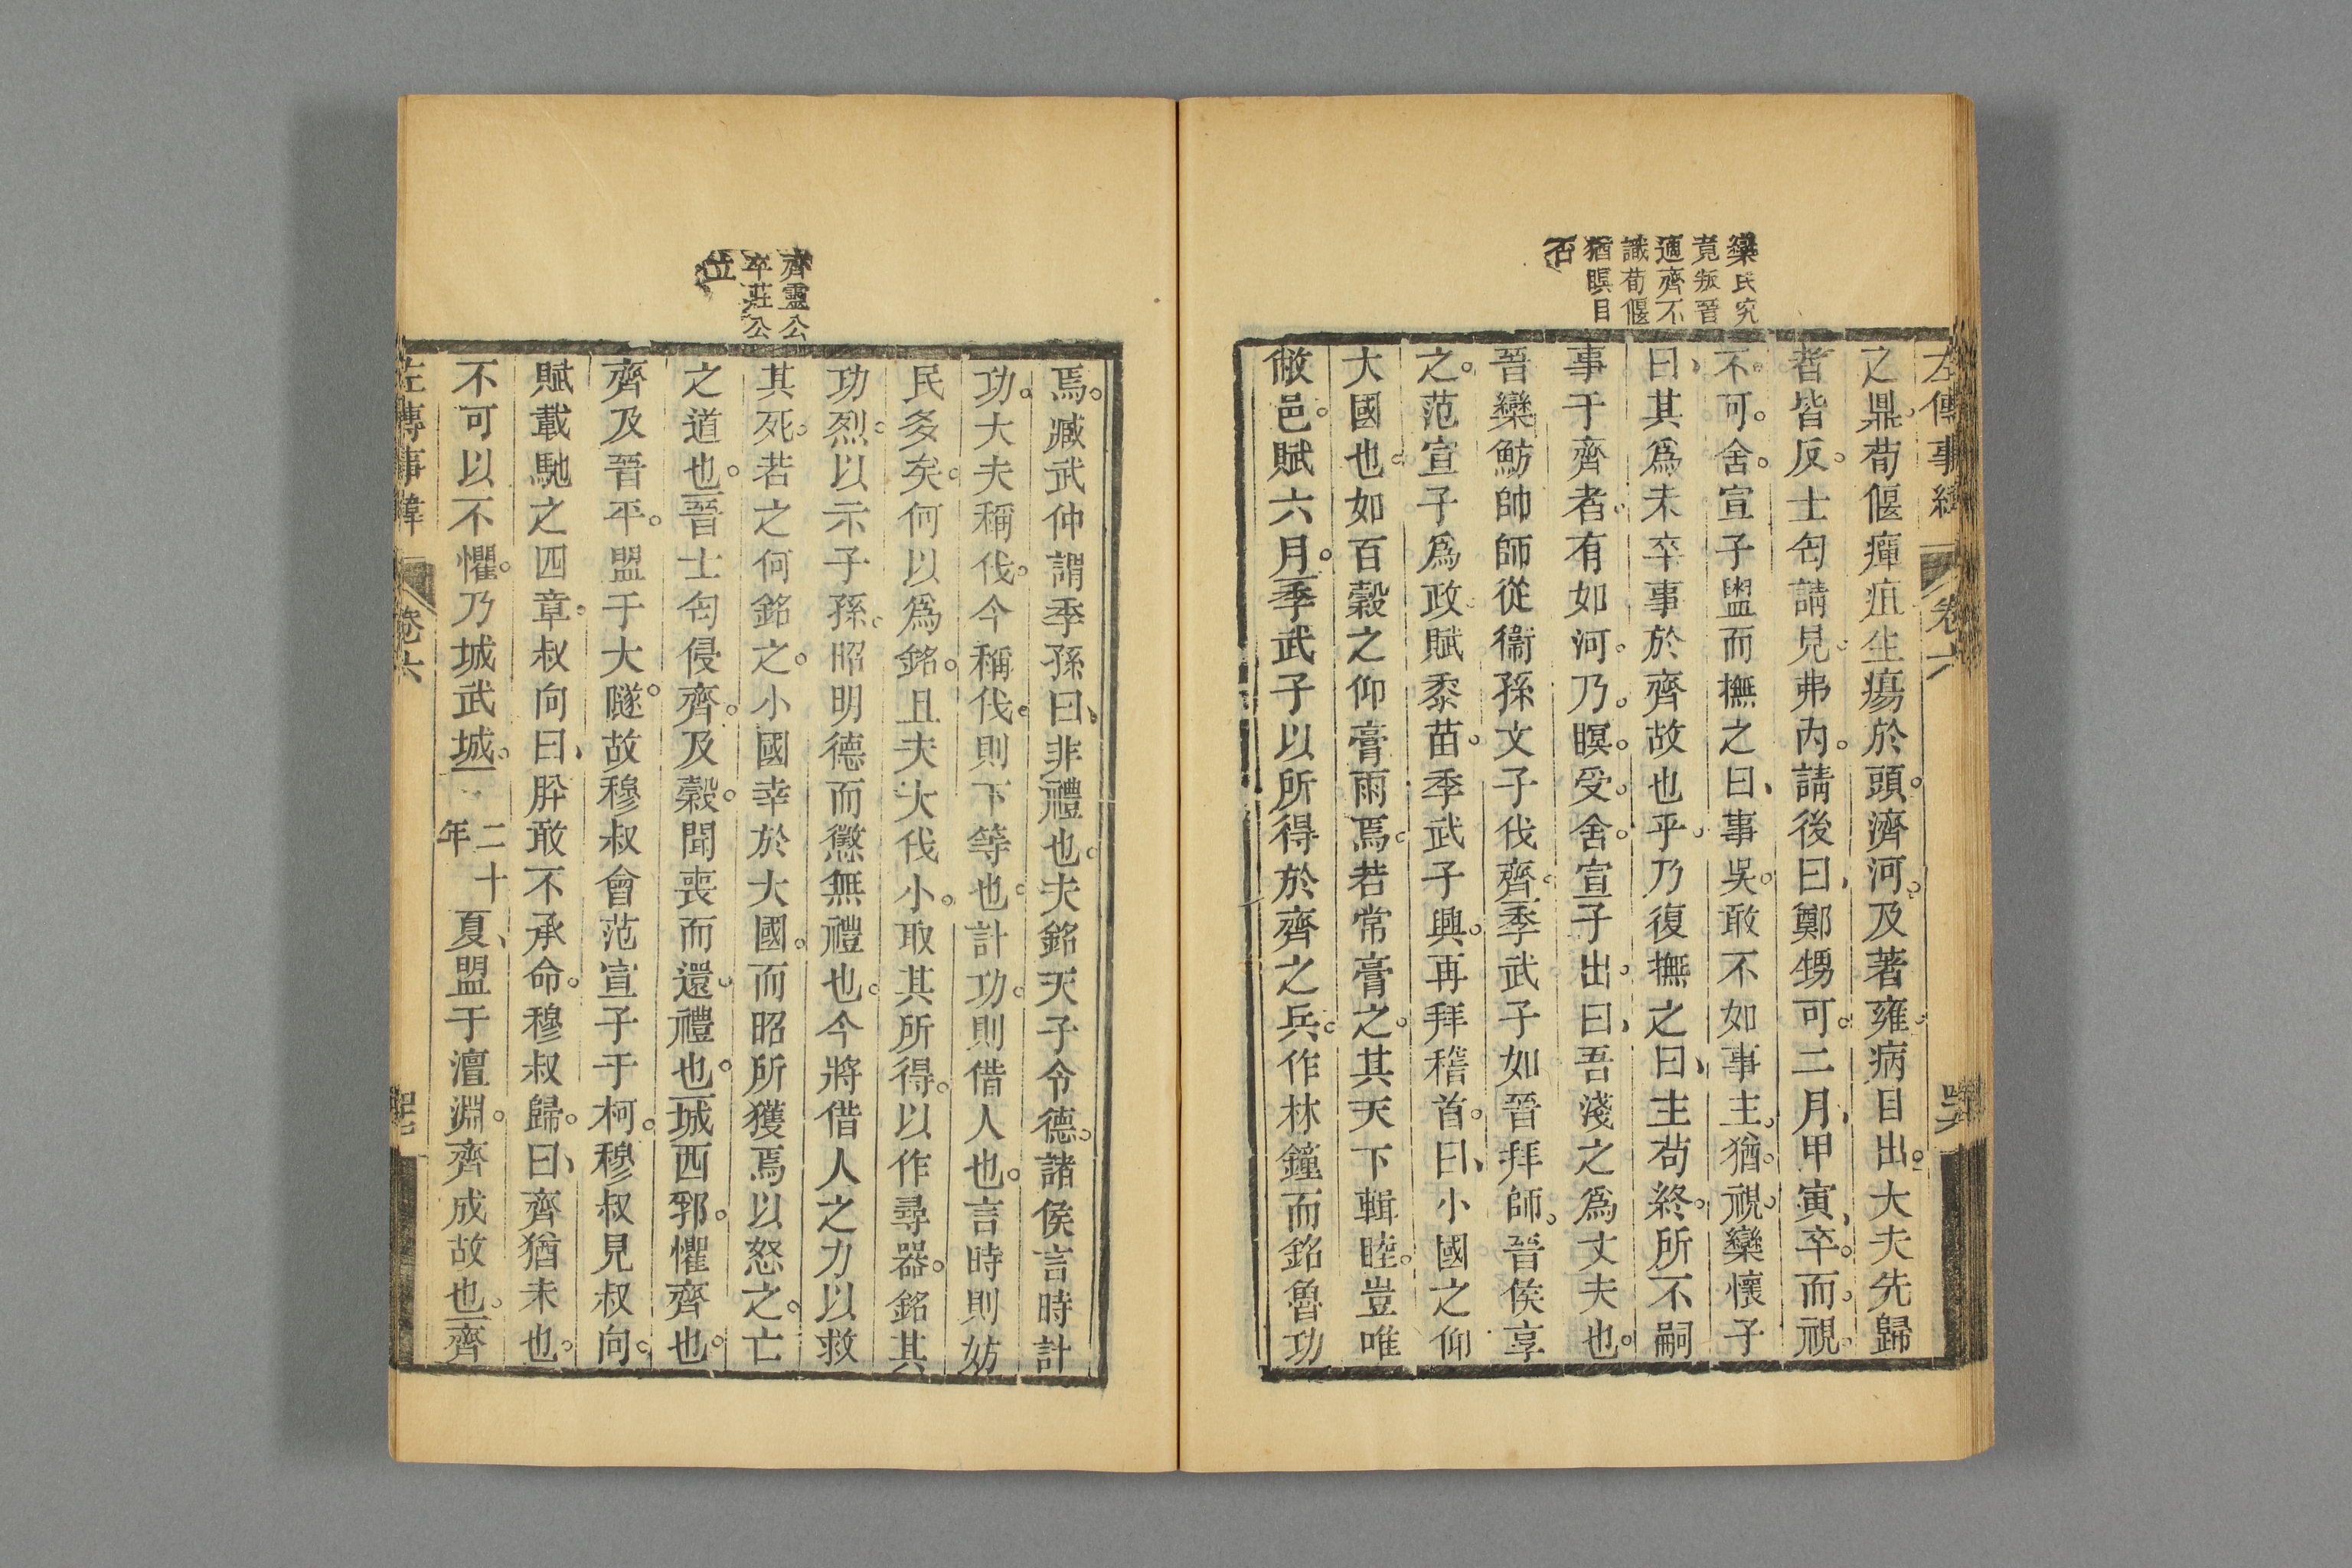 左傳事緯 卷六
欒氏究
竟叛晉
適齊不
識荀偃
猶瞑目
否
之鼎荀偃癉疽生瘍於頭。濟河。及著雍病目出。大夫先歸
者皆反。士匄請見弗內。請後曰、鄭甥可。二月、甲寅、卒。而視。
不可。舍。宣子盥而撫之曰、事吳。敢不如事主。猶。視。欒懷子
曰、其爲未卒事於齊故也乎。乃復撫之曰、主茍終。所不嗣
事于齊者。有如河。乃。瞑。受。舍。宣子出。曰、吾淺之爲丈夫也。
晉欒魴帥師從衞孫文子伐齊。季武子如晉拜師。晉侯享
之。范宣子爲政。賦黍苗。季武子興。再拜稽首。曰、小國之仰
大國也。如百穀之仰膏雨焉。若常膏之。其天下輯睦。豈唯
敝邑。賦六月。季武子以所得於齊之兵。作林鐘而銘魯功
齊靈公
卒莊公
立
焉。臧武仲謂季孫曰、非禮也。夫銘天子令德。諸侯言時計
功。大夫稱伐。今稱伐。則下等也。計功。則借人也。言時則妨
民多矣。何以爲銘。且夫大伐小。取其所得。以作尋器。銘其
功烈。以示子孫。昭明德而懲無禮也。今將借人之力以救
其死。若之何銘之。小國幸於大國。而昭所獲焉以怒之。亡
之道也。晉士匄侵齊。及穀。聞喪而還。禮也。城西郛。懼齊也。
齊及晉平。盟于大隧。故穆叔會范宣子于柯。穆叔見叔向。
賦載馳之四章。叔向曰、肸敢不承命。穆叔歸。曰、齊猶未也。
不可以不懼。乃城武城。二十年夏、盟于澶淵。齊成故也。齊
左傳事緯 卷六